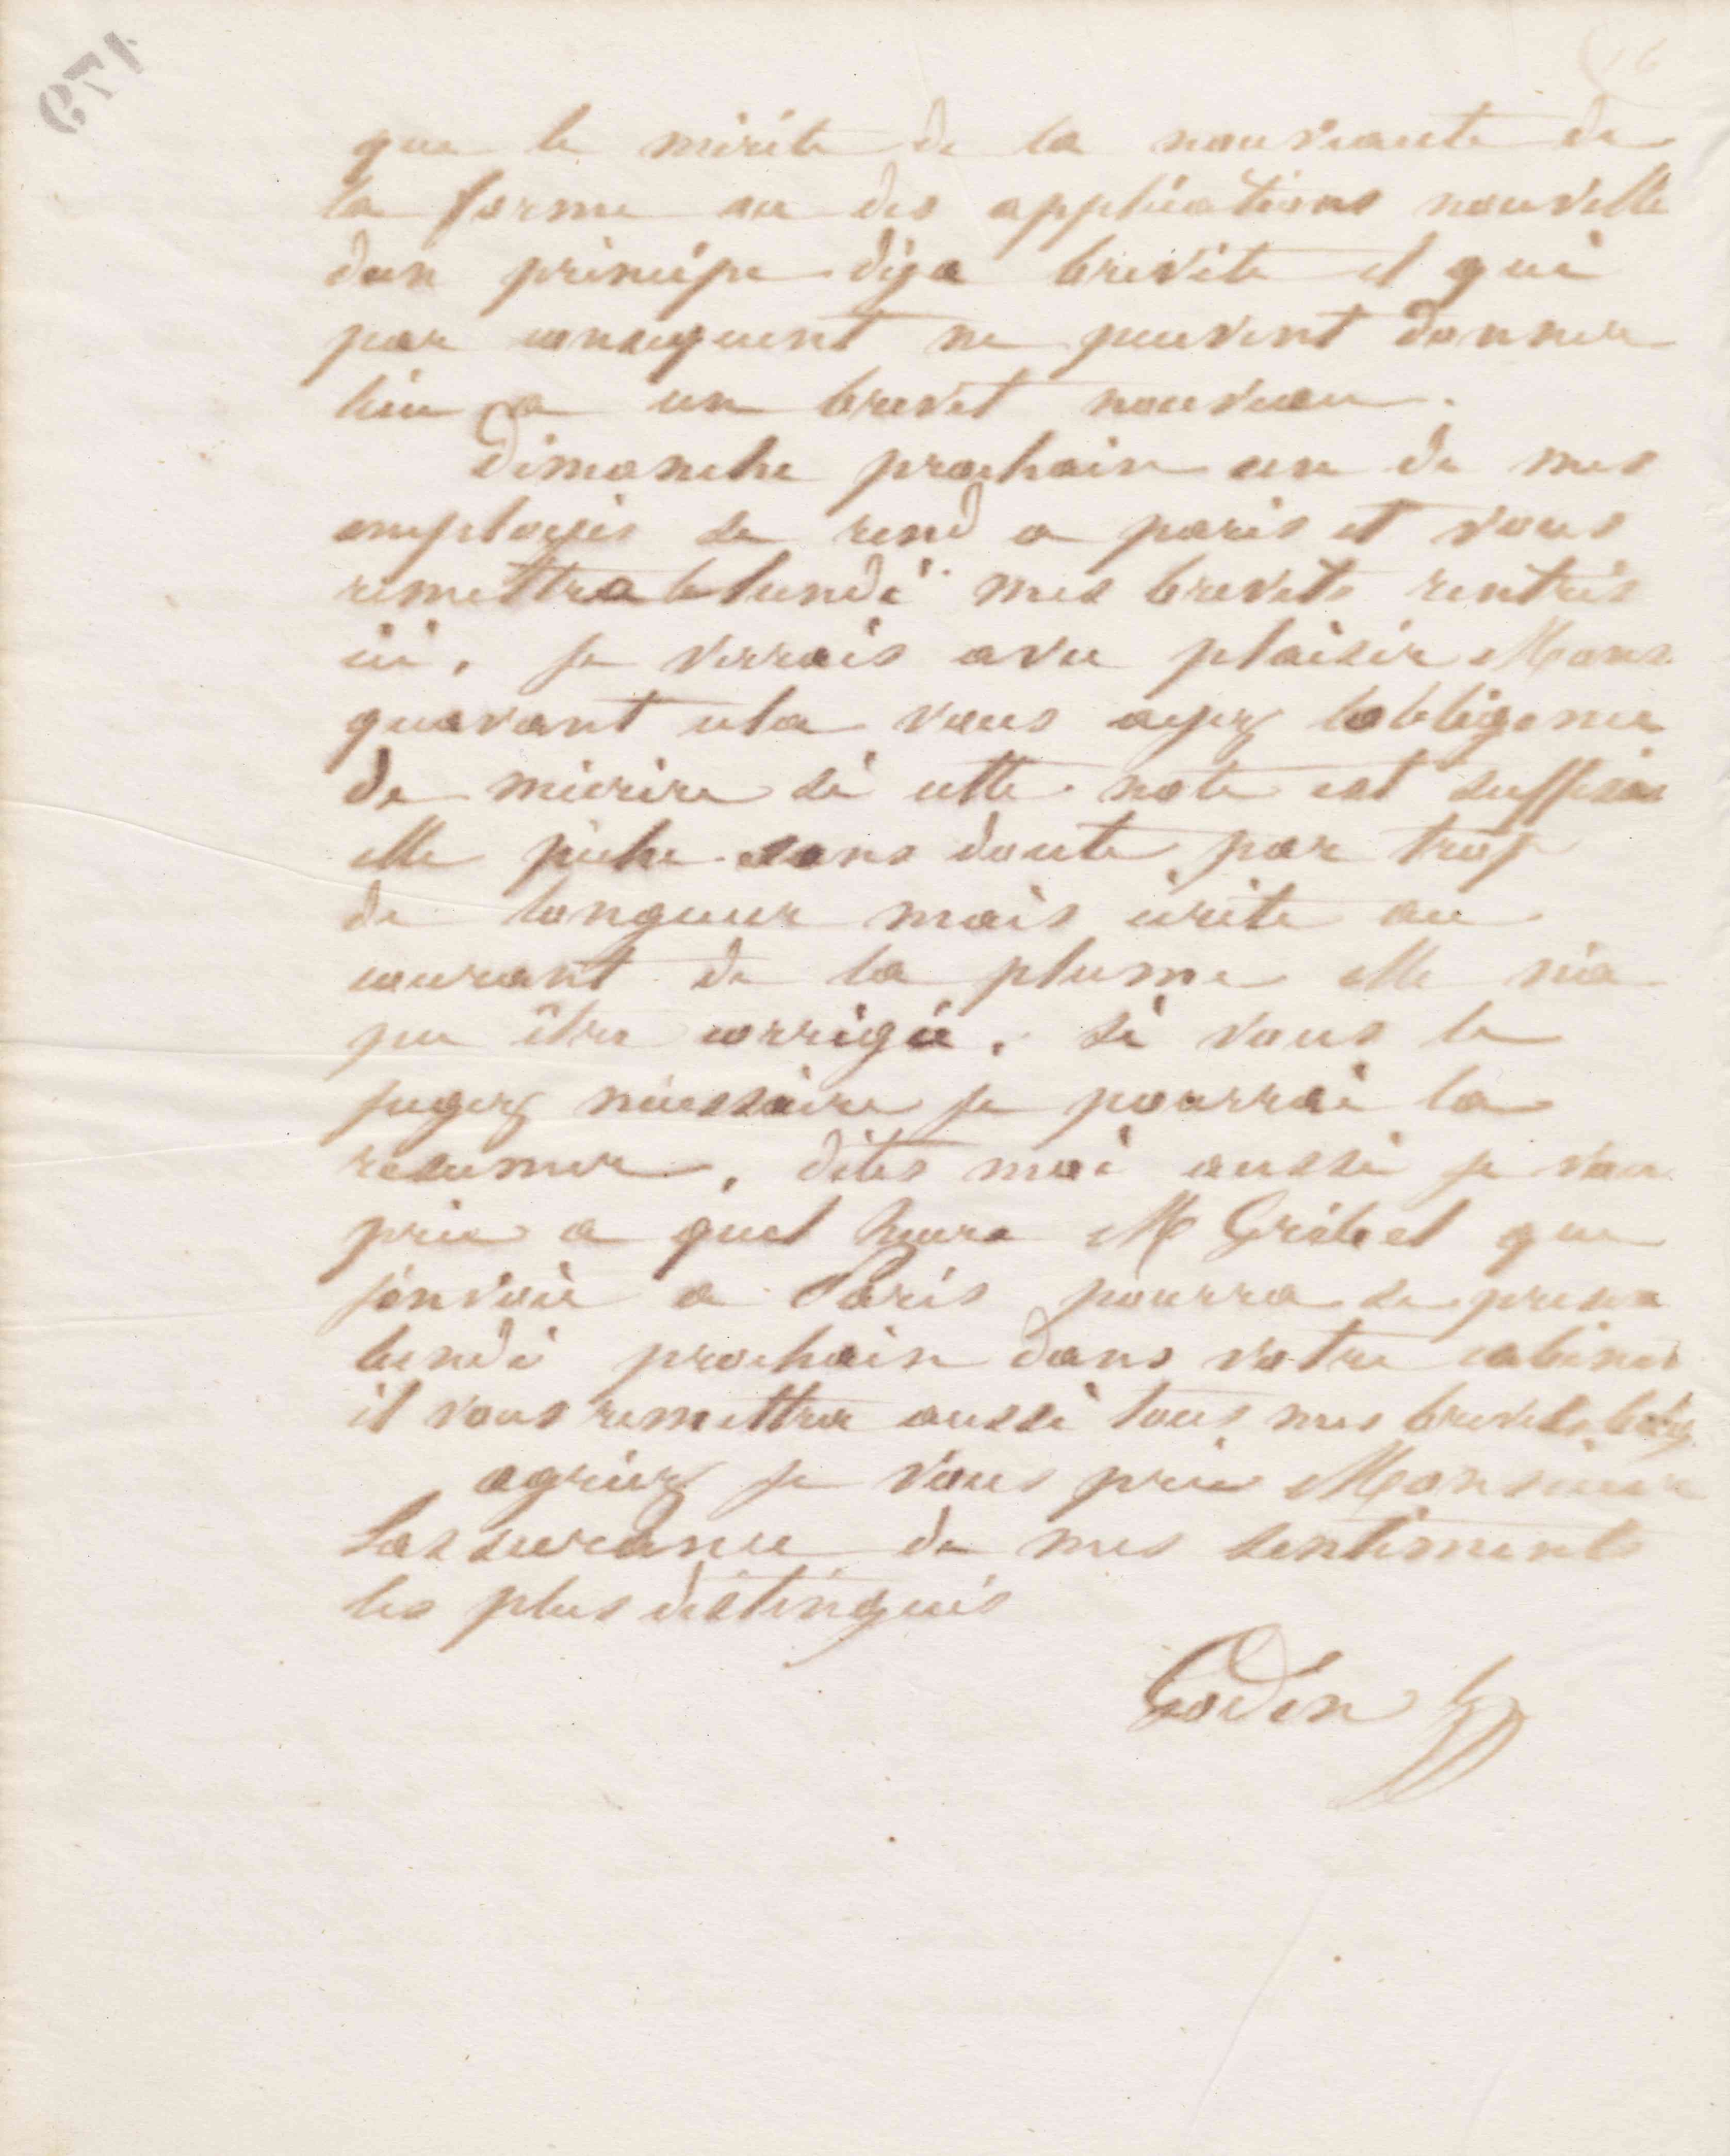 179
que le mérite de la nouveauté de
la forme ou des applications nouvelle
dun principe déja breveté et qui
par consequent ne peuvent donner
lieu a un brevet nouveau.
Dimanche prochain un de mes
employés se rend a paris et vous
remettra le lundi mes brevets rentrés
ici. je verrais avec plaisir Mons
quavant cela vous ayez lobligence
de mécrire si cette note est suffisan
elle pèche sans doute par trop
de longueur mais écrite au
courant de la plume elle na
pu être corrigée. si vous le
jugez nécessaire je pourrai la
resumer. dites moi aussi je vou
prie a quel heure M Gribel que
jenvoie a Paris pourra se presen
lundi prochain dans votre cabinet
il vous remettra aussi tous mes brevets belg
agréez je vous prie Monsieur
Lassurance de mes sentiments
les plus distingués
Godin